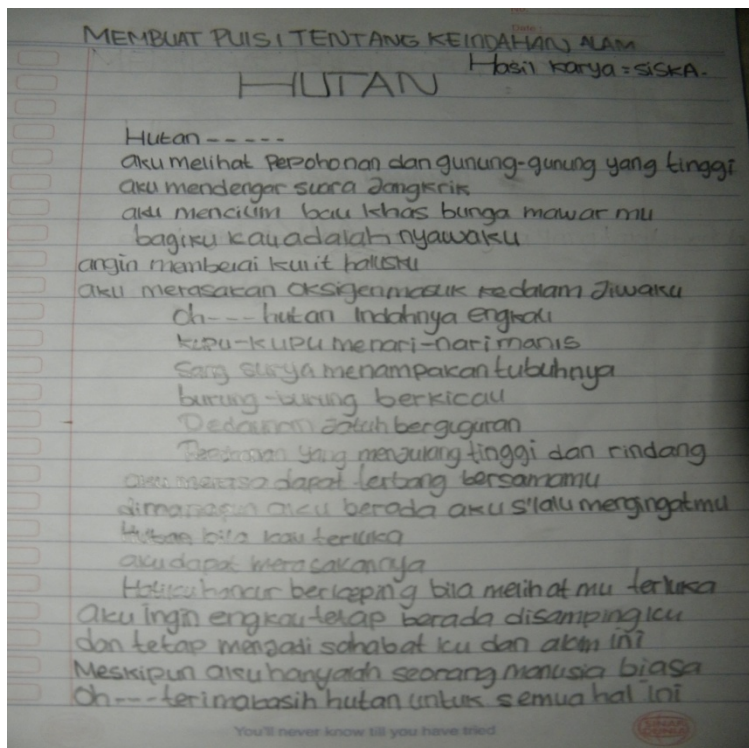 Date:
MEMBUAT PUISI TENTANG KEINDAHAN ALAM
Hasil Karya = SISKA.
HUTAN
Hutan -----
aku melihat Pepohonan dan gunung-gunung yang tinggi
aku mendengar suara Jangkrik
aku mencium bau khas bunga mawar mu
bagiku kau adalah nyawaku
angin membelai kulit halusku
aku merasakan Oksigen masuk kedalam Jiwaku
Oh --- hutan Indahnya engkau
kupu-kupu menari-nari manis
Sang surya menampakan tubuhnya
burung-burung berkicau
Dedaunan Jatuh berguguran
yang menjulang tinggi dan rindang
aku merasa dapat terbang bersamamu
dimanapun aku berada aku s'lalu mengingatmu
Hutan bila kau terluka
aku dapat merasakannya
Hatiku hancur berkeping bila melihat mu terluka
aku Ingin engkau tetap berada disampingku
dan tetap menjadi sahabat ku dan alam ini
Meskipun aku hanyalah seorang manusia biasa
Oh --- terimakasih hutan untuk semua hal ini
You'll never know till you have tried